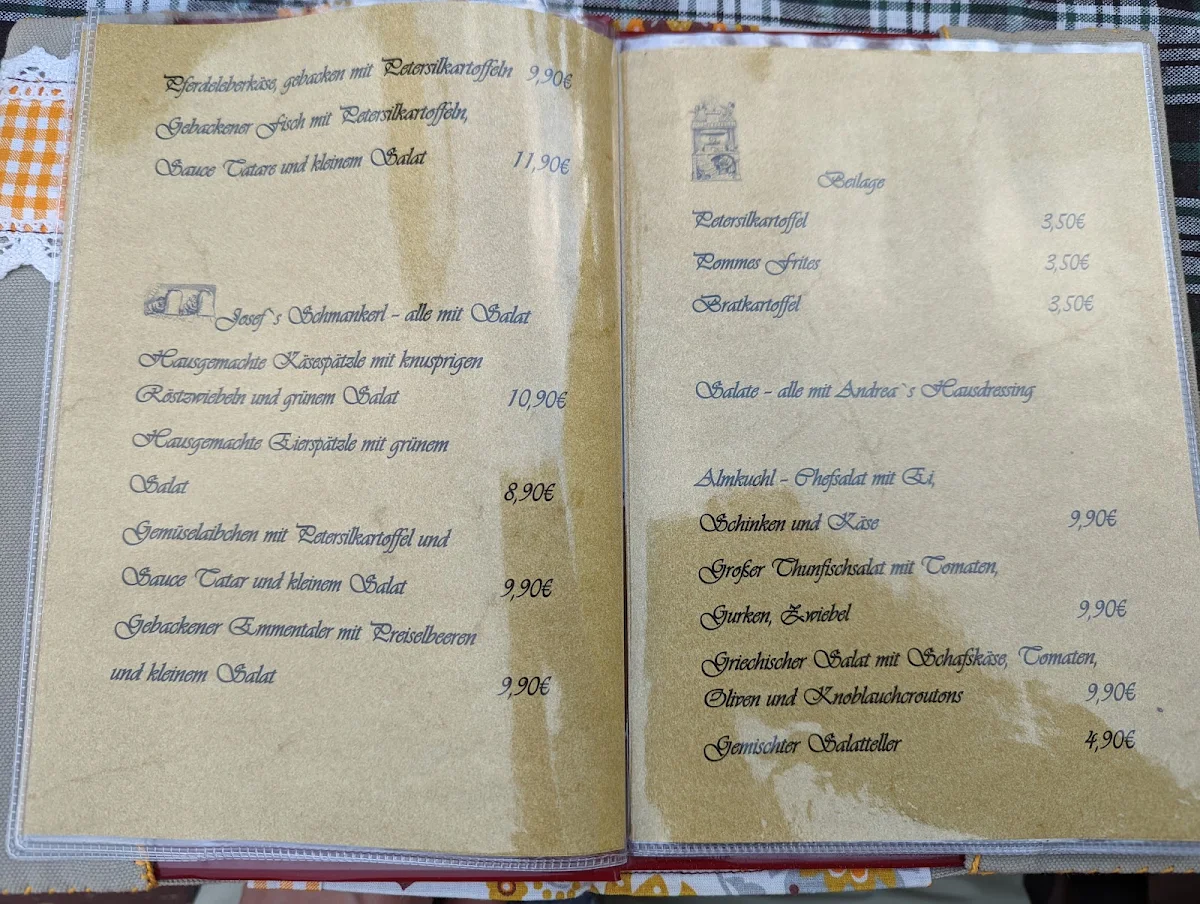 Pferdeleberkäse, gebacken mit Petersilkartoffeln 9,90€
Gebackener Fisch mit Petersilkartoffeln,
Sauce Tatare und kleinem Salat 11,90€
Josef`s Schmankerl - alle mit Salat
Hausgemachte Käsespätzle mit knusprigen
Röstzwiebeln und grünem Salat 10,90€
Hausgemachte Eierspätzle mit grünem
Salat 8,90€
Gemüselaibchen mit Petersilkartoffel und
Sauce Tatar und kleinem Salat 9,90€
Gebackener Emmentaler mit Preiselbeeren
und kleinem Salat 9,90€
Beilage
Petersilkartoffel 3,50€
Pommes Frites 3,50€
Bratkartoffel 3,50€
Salate - alle mit Andrea`s Hausdressing
Almkuchl - Chefsalat mit Ei,
Schinken und Käse 9,90€
Großer Thunfischsalat mit Tomaten,
Gurken, Zwiebel 9,90€
Griechischer Salat mit Schafskäse, Tomaten,
Oliven und Knoblauchcroutons 9,90€
Gemischter Salatteller 4,90€